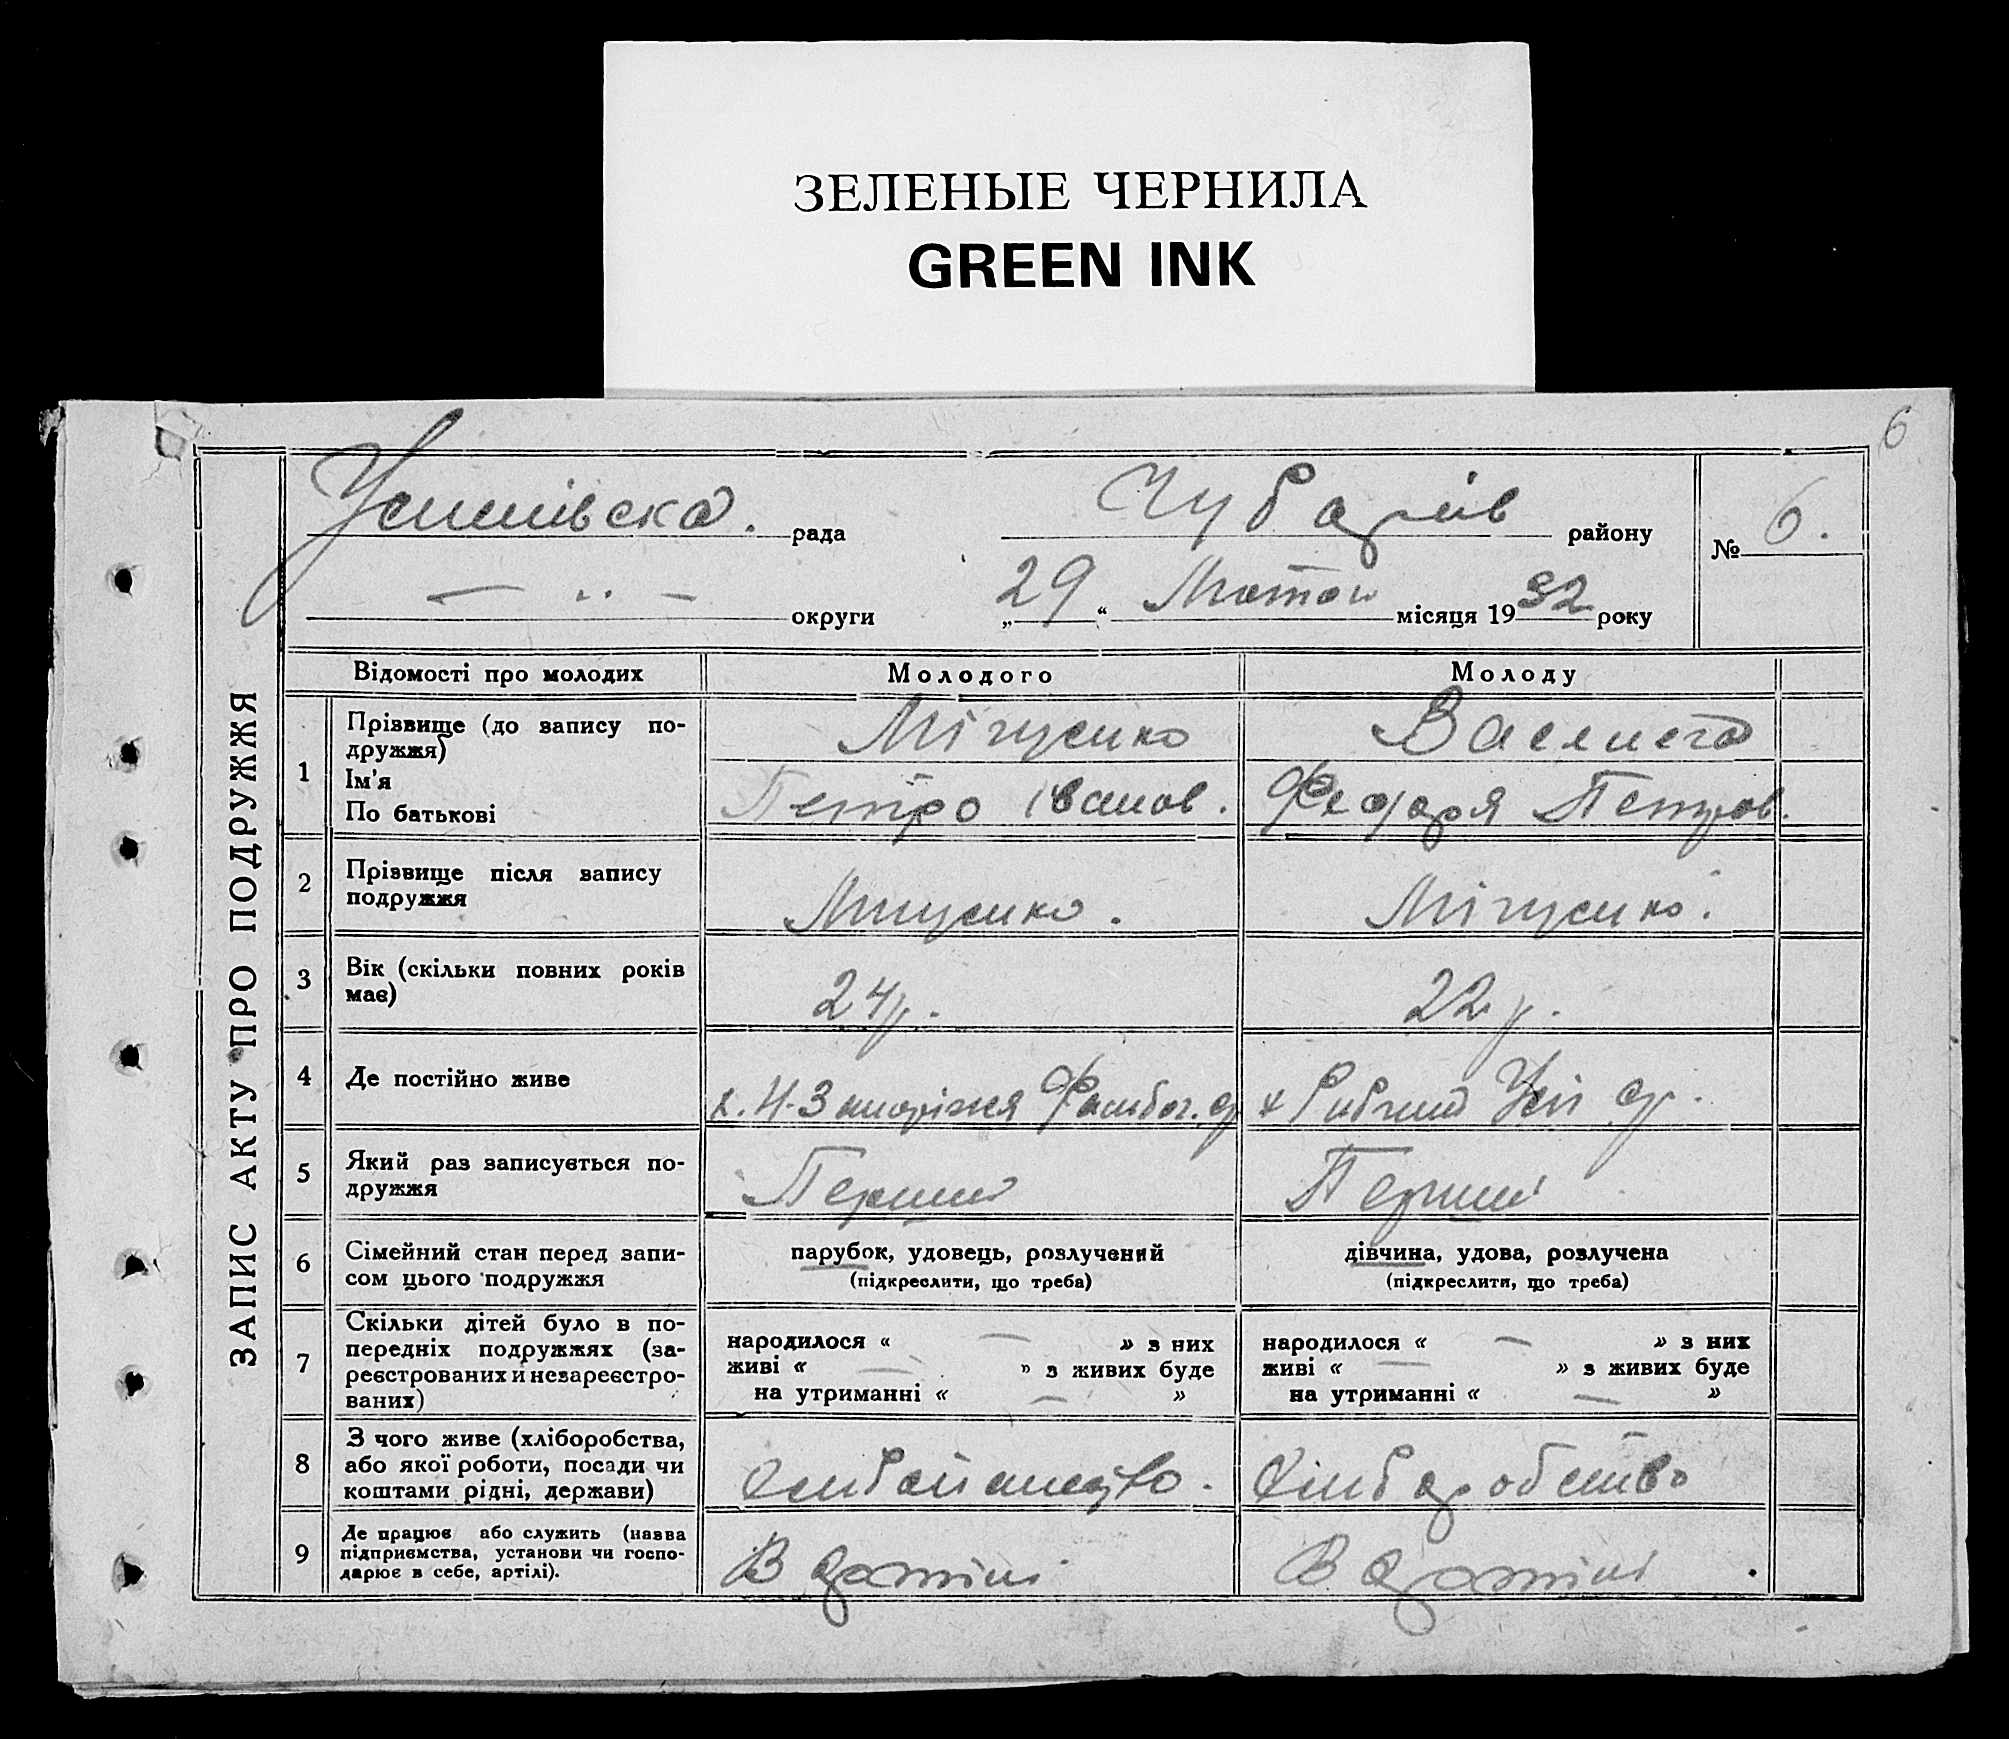 ЗЕЛЕНЫЕ ЧЕРНИЛА
GREEN INK
6
ЗАПИС АКТУ ПРО ПОДРУЖЖЯ
Успенівска. рада Чубарів району № 6.
— „ — округи „29“ Лютого місяця 1932 року
Відомості про молодих Молодого Молоду
1 Прізвище (до запису по-
дружжя)
Ім'я
По батькові
Мігусенко
Петро Іванов.
Федоря Петров.
2 Прізвище після запису
подружжя
Мігусенко.
Мігусенко.
3 Вік (скільки повних років
має)
24р.
22р.
4 Де постійно живе
х. Н-Запоріжжя
5 Який раз записується по-
дружжя
Перший
Перший
6 Сімейний стан перед запи-
сом цього подружжя
парубок, удовець, розлучений
(підкреслити, що треба)
дівчина, удова, розлучена
(підкреслити, що треба)
7 Скільки дітей було в по-
передніх подружжях (за-
реєстрованих й незареєстро-
ваних)
народилося « — » з них
живі « — » з живих буде
на утриманні « — »
народилося « — » з них
живі « — » з живих буде
на утриманні « — »
8 З чого живе (хліборобства,
або якої роботи, посади чи
коштами рідні, держави)
Хліборобство
9 Де працює або служить (назва
підприємства, установи чи госпо-
дарює в себе, артілі).
В артілі
В артілі.